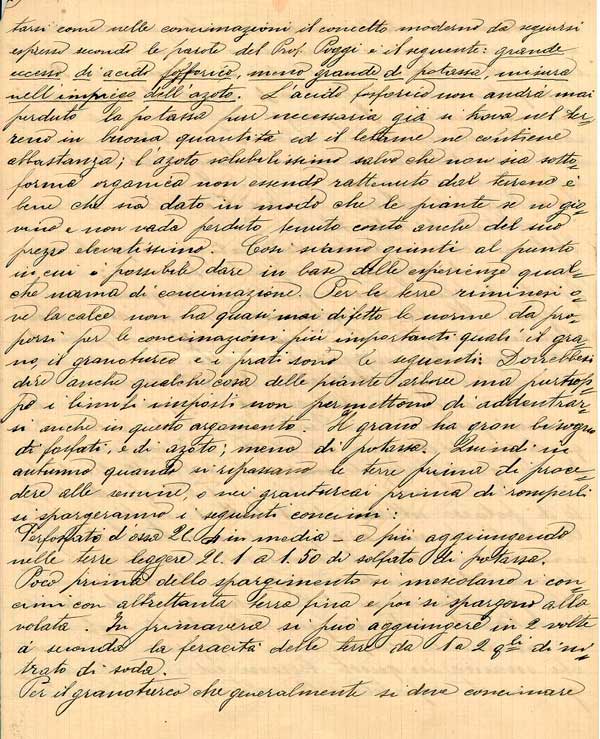 tarsi come nelle concimazioni il concetto moderno da seguirsi
espresso secondo le parole del Prof. Poggi è il seguente: grande
eccesso di acido fosforico, meno grande di potassa, misura
nell'impiego dell'azoto. L'acido fosforico non andrà mai
perduto la potassa pur necessaria già si trova nel ter-
reno in buona quantità ed il letame ne contiene
abbastanza; l'azoto solubilissimo salvo che non sia sotto-
forma organica non essendo rattenuto dal terreno è
bene che sia dato in modo che le piante se ne gio-
vino e non vada perduto, tenuto conto anche del suo
prezzo elevatissimo. Così siamo giunti al punto
in cui è possibile dare in base delle esperienze qual-
che norma di concimazione. Per le terre riminesi o-
ve la calce non ha quasi mai difetto le norme da pro-
porsi per le concimazioni più importanti quali il gra-
no, il granoturco e i prati sono le seguenti: Dovrebbesi
dire anche qualche cosa delle piante arboree ma purtrop-
po i limiti imposti non permettono di addentrar-
si anche in questo argomento. Il grano ha gran bisogno
di fosfati, e di azoto; meno di potassa. Quindi in
autunno quando si ripassano le terre prima di proce-
dere alle semine, o nei granturcai prima di romperli
si spargeranno i seguenti concimi:
Perfosfato d'ossa Ql. 4 in media - e più aggiungendo
nelle terre leggere Ql. 1 a 1.50 di solfato di potassa.
Poco prima dello spargimento si mescolano i con-
cimi con altrettanta terra fina e poi si spargono alla
volata. In primavera si può aggiungere in 2 volte
a seconda la feracità delle terre da 1 a 2 q.li di ni-
trato di soda.
Per il granoturco che generalmente si deve concimare